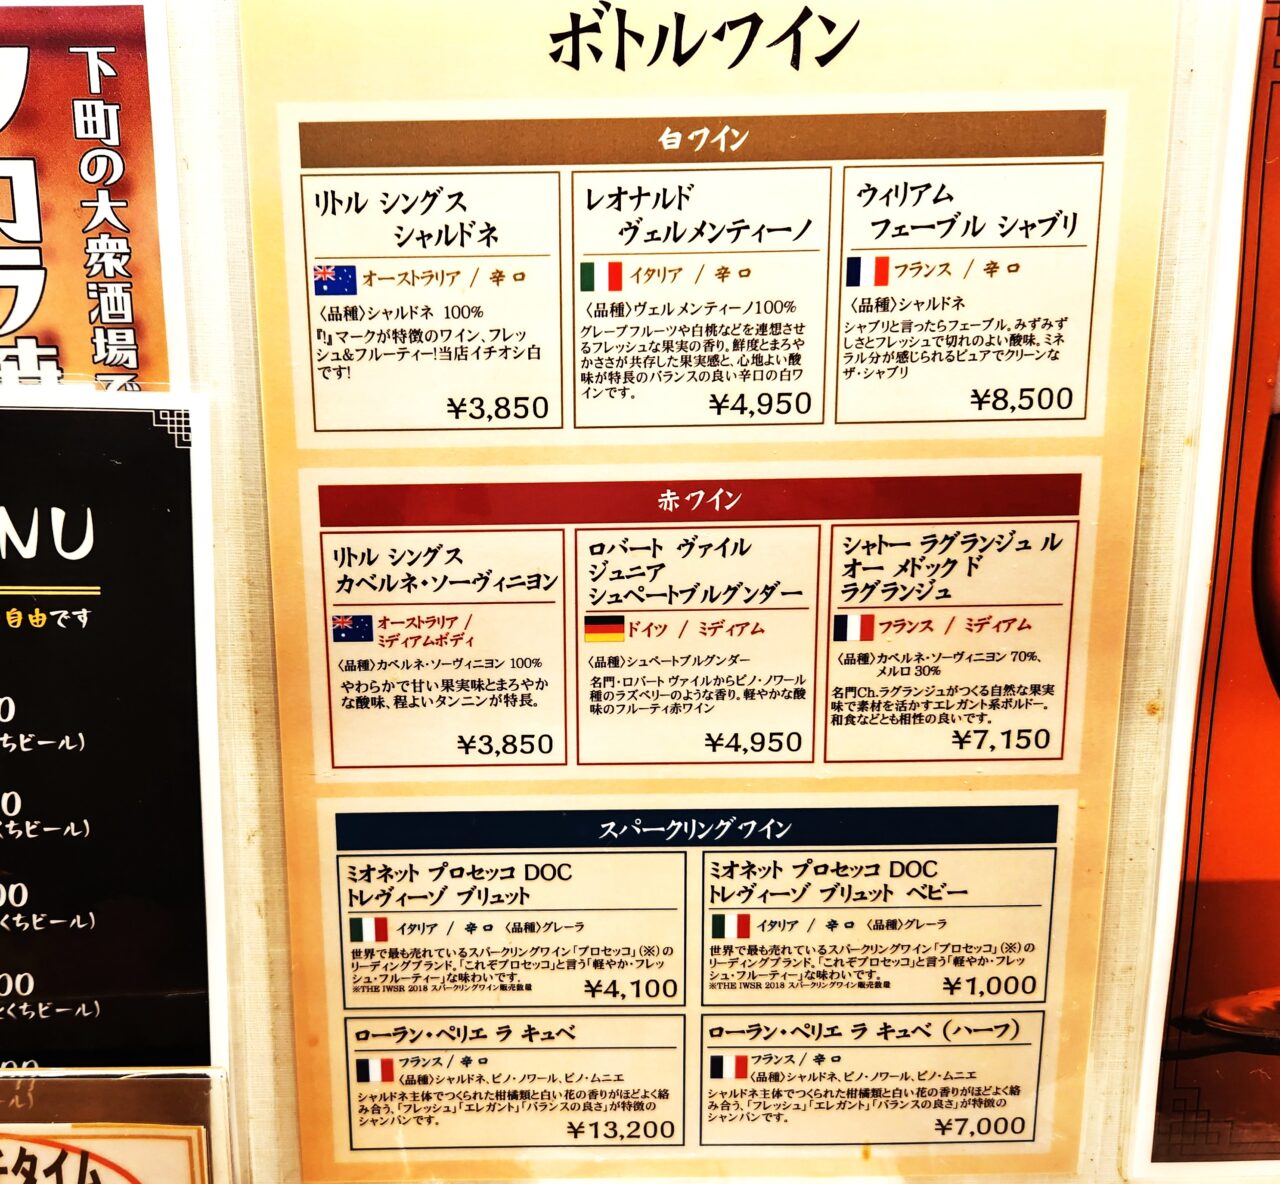 ボトルワイン
白ワイン
リトル シングス
シャルドネ
オーストラリア / 辛口
〈品種〉シャルドネ 100%
『!』マークが特徴のワイン、フレッ
シュ&フルーティー!当店イチオシ白
です!
¥3,850
レオナルド
ヴェルメンティーノ
イタリア / 辛口
〈品種〉ヴェルメンティーノ100%
グレープフルーツや白桃などを連想させ
るフレッシュな果実の香り。鮮度とまろや
かささが共存した果実感と、心地よい酸
味が特長のバランスの良い辛口の白ワ
インです。
¥4,950
ウィリアム
フェーブル シャブリ
フランス / 辛口
〈品種〉シャルドネ
シャブリと言ったらフェーブル。みずみず
しさとフレッシュで切れのよい酸味。ミネ
ラル分が感じられるピュアでクリーンな
ザ・シャブリ
¥8,500
赤ワイン
リトル シングス
カベルネ・ソーヴィニヨン
オーストラリア /
ミディアムボディ
〈品種〉カベルネ・ソーヴィニヨン 100%
やわらかで甘い果実味とまろやか
な酸味、程よいタンニンが特長。
¥3,850
ロバート ヴァイル
ジュニア
シュペートブルグンダー
ドイツ / ミディアム
〈品種〉シュペートブルグンダー
名門・ロバートヴァイルからピノ・ノワール
種のラズベリーのような香り。軽やかな酸
味のフルーティ赤ワイン
¥4,950
シャトー ラグランジュ ル
オー メドック ド
ラグランジュ
フランス / ミディアム
〈品種〉カベルネ・ソーヴィニヨン 70%、
メルロ 30%
名門Ch.ラグランジュがつくる自然な果実
味で素材を活かすエレガント系ボルドー。
和食などとも相性の良いです。
¥7,150
スパークリングワイン
ミオネット プロセッコ DOC
トレヴィーゾ ブリュット
イタリア / 辛口 〈品種〉グレーラ
世界で最も売れているスパークリングワイン「プロセッコ」(※)の
リーディングブランド。「これぞプロセッコ」と言う「軽やか・フレッ
シュ・フルーティー」な味わいです。
※THE IWSR 2018 スパークリングワイン販売数量
¥4,100
ミオネット プロセッコ DOC
トレヴィーゾ ブリュット ベビー
イタリア / 辛口 〈品種〉グレーラ
世界で最も売れているスパークリングワイン「プロセッコ」(※)の
リーディングブランド。「これぞプロセッコ」と言う「軽やか・フレッ
シュ・フルーティー」な味わいです。
※THE IWSR 2018 スパークリングワイン販売数量
¥1,000
ローラン・ペリエ ラ キュベ
フランス / 辛口
〈品種〉シャルドネ、ピノ・ノワール、ピノ・ムニエ
シャルドネ主体でつくられた柑橘類と白い花の香りがほどよく絡
み合う、「フレッシュ」「エレガント」「バランスの良さ」が特徴の
シャンパンです。
¥13,200
ローラン・ペリエ ラ キュベ (ハーフ)
フランス / 辛口
〈品種〉シャルドネ、ピノ・ノワール、ピノ・ムニエ
シャルドネ主体でつくられた柑橘類と白い花の香りがほどよく絡
み合う、「フレッシュ」「エレガント」「バランスの良さ」が特徴の
シャンパンです。
¥7,000
下町の大衆酒場で
NU
自由です
ちビール)
ちビール)
くちビール)
くちビール)
タイム